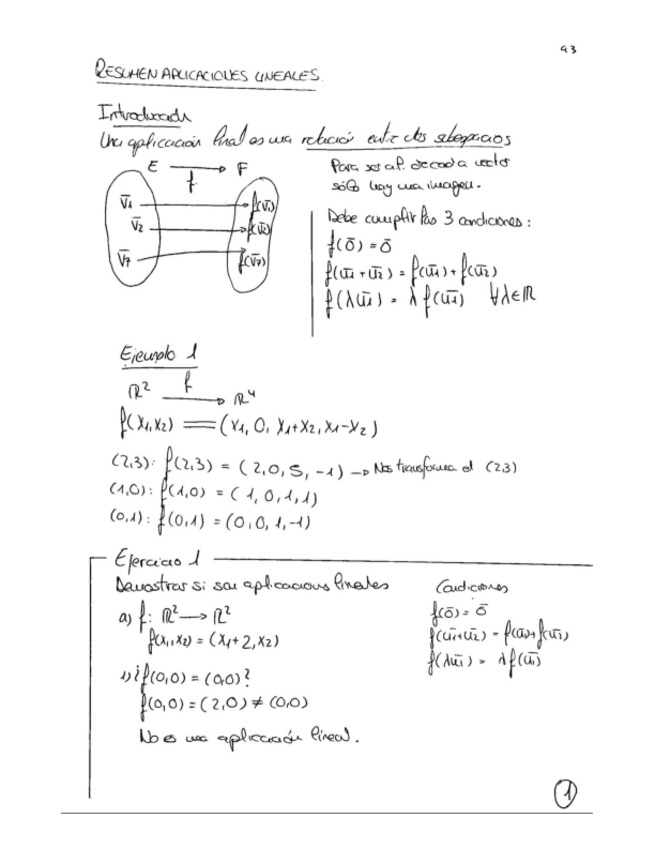 93
RESUMEN APLICACIONES LINEALES.
Introducción
Una aplicación lineal es una relación entre dos subespacios
E → F
f
V̄1 f(V̄1)
V̄2 f(V̄2)
V̄7 f(V̄7)
Para ser apl. de cada vector
sólo hay una imagen.
Debe cumplir las 3 condiciones:
f(ō) = ō
f(ū1 + ū2) = f(ū1) + f(ū2)
f(λū1) = λ f(ū1) ∀λ∈ℝ
Ejemplo 1
ℝ² f → ℝ⁴
f(x1,x2) = (x1, 0, x1+x2, x1-x2)
(2,3): f(2,3) = (2,0,5,-1) → Nos transforma el (2,3)
(1,0): f(1,0) = (1,0,1,1)
(0,1): f(0,1) = (0,0,1,-1)
Ejercicio 1
Demostrar si son aplicaciones lineales
a) f: ℝ² → ℝ²
f(x1,x2) = (x1+2,x2)
1) ¿f(0,0) = (0,0)?
f(0,0) = (2,0) ≠ (0,0)
No es una aplicación lineal.
Condiciones
f(ō) = ō
f(ū1+ū2) = f(ū1)+f(ū2)
f(λū1) = λf(ū1)
1